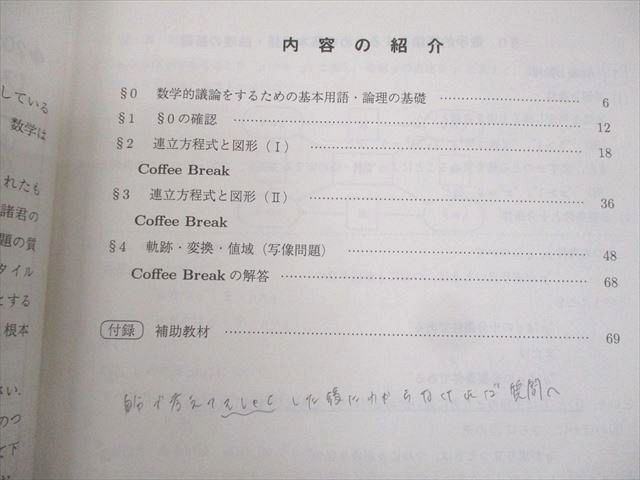 している
数学は
れたも
諸君の
題の質
タイル
とする
根本
さい.
のつ
て下
内容の紹介
§0 数学的議論をするための基本用語・論理の基礎 6
§1 §0の確認 12
§2 連立方程式と図形（Ⅰ） 18
Coffee Break
§3 連立方程式と図形（Ⅱ） 36
Coffee Break
§4 軌跡・変換・値域（写像問題） 48
Coffee Break の解答 68
付録 補助教材 69
自分で考えて した後にわからなければ質問へ